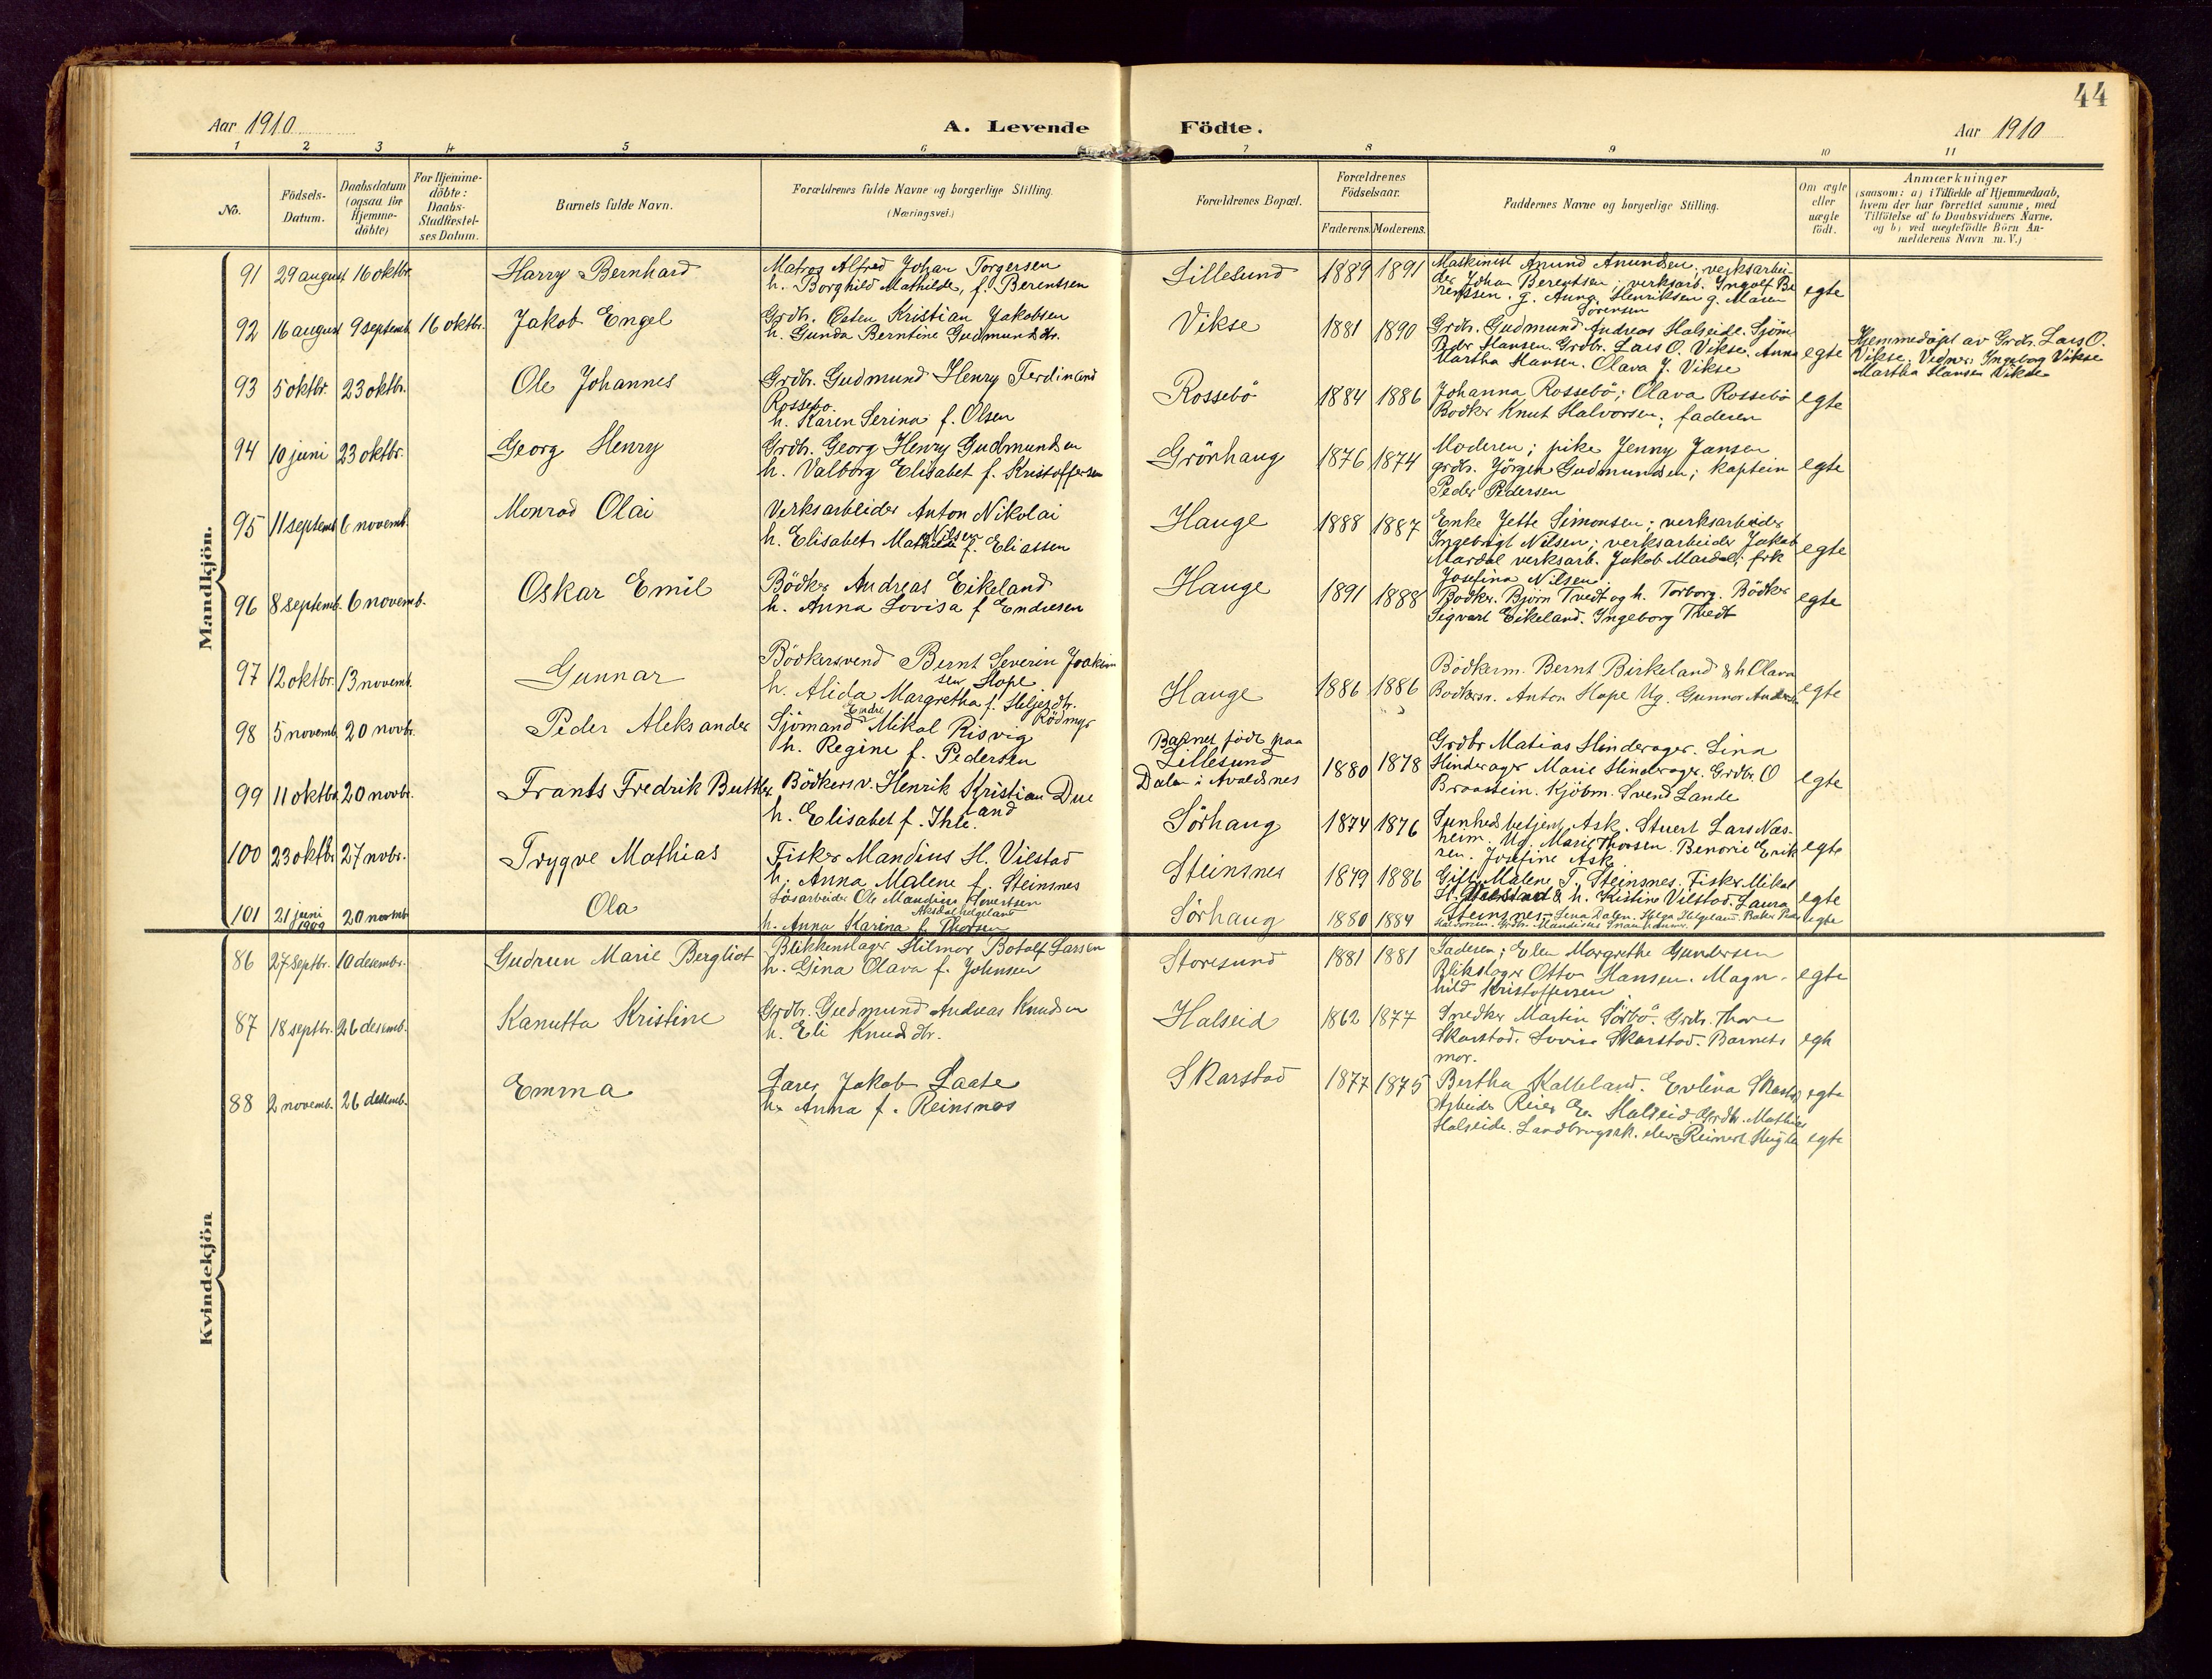 44
Aar 1910
A. Levende Födte.
Aar 1910
1 2 3 4 5 6 7 8 9 10 11
No.
Födsels-
Datum.
Daabsdatum
(ogsaa for
Hjemme-
döbte)
For Hjemme-
döbte:
Daabs-
Stadfæstel-
ses Datum.
Barnets fulde Navn.
Forældrenes fulde Navne og borgerlige Stilling.
(Næringsvei.)
Forældrenes Bopæl.
Forældrenes
Födselsaar.
Faderens. Moderens.
Faddernes Navne og borgerlige Stilling.
Om ægte
eller
uægte
födt.
Anmærkninger
(saasom: a) i Tilfælde af Hjemmedaab,
hvem der har forrettet samme, med
Tilföielse af to Daabsvidners Navne,
og b) ved uægtefödte Börn An-
melderens Navn m. V.)
Mandkjön.
91 29 august 16 oktbr. Harry Bernhard
Matros Alfred Johan Torgersen
h. Borghild Mathilde, f. Berentsen
Lillesund 1889 1891
Maskinist Anund Anundsen; verksarbei-
der Johan Berentsen; verksarb. Ingolf Be
rentsen. g. Anna Henriksen g. Maren
Sörensen
egte
92 16 august 9 septemb. 16 oktbr. Jakob Engel
Grdbr. Osten Kristian Jakobsen
h. Gunda Berntine Gudmundsdtr.
Vikse 1881 1890
Grdbr. Gudmund Andreas Halseide. Sjöm
Peder Hansen. Grdbr. Lars O. Vikse. Anna
Martha Hansen. Olava J. Vikse
egte
Hjemmedöpt av Grdb. Lars O.
Vikse. Vidner: Ingeborg Vikse
Martha Hansen Vikse
93 5 oktbr. 23 oktbr. Ole Johannes
Grdbr. Gudmund Henry Ferdinand
Rossebø
h. Karen Serina f. Olsen
Rossebö 1884 1886
Johanna Rossebö; Olava Rossebö
Bödker Knut Halvorsen; faderen
egte
94 10 juni 23 oktbr. Georg Henry
Grdb. Georg Henry Gudmundsen
h. Valborg Elisabet f. Kristoffersen
Grönhaug 1876 1874
Moderen; pike Jenny Jansen
grdbr. Jörgen Gudmundsen; kaptein
Peder Pedersen
egte
95 11 septemb. 6 novemb. Monrad Olai
Verksarbeider Anton Nikolai
Nilsen
h. Elisabet Mathilde f. Eliassen
Hauge 1888 1887
Enke Jette Simonsen; verksarbeider
Ingebrigt Nilsen; verksarbeider Jakob
Mardal verksarb. Jakob Mardal; frk
Josefina Nilsen.
egte
96 8 septemb. 6 novemb. Oskar Emil
Bödker Andreas Eikeland
h. Anna Lovisa f Endresen
Hauge 1891 1888
Bodker. Björn Tvedt og h. Torborg. Bödker
Sigvart Eikeland. Ingeborg Tvedt
egte
97 12 oktbr. 13 novemb. Gunnar
Bödkersvend Bernt Severin Joakim
sen Hope
h. Alida Margretha f. Heljesdtr.
Rödmyr
Hauge 1886 1886
Bödkerm. Bernt Birkeland & h Olava
Bodkersv. Anton Hope Ug. Gunnar Andersen
egte
98 5 novemb. 20 novbr. Peder Aleksander
Endre
Sjömand Mikal Risvig
h. Regine f. Pedersen
Barnet födt paa
Lillesund
Dalen i Avaldsnes
1880 1878
Grdbr Matias Hinderager. Lina
Hinderager Marie Hinderager. Grdbr. O
Braastein. Kjöbm. Svend Lande
egte
99 11 oktbr. 20 novbr. Frants Fredrik Buttler
Bödkersv. Henrik Kristian Due
land
h. Elisabet f. Ihle.
Sörhaug 1874 1876
Sunhedsbetjent Ask. Stuert Lars Næs-
heim. Ug. Marie Thorsen. Benorie Erik
sen. Josefine Ask
egte
100 23 oktbr 27 nobr. Trygve Mathias
Fisker Mandius H. Vilstad
h. Anna Malene f. Steinsnes
Steinsnes 1879 1886
Gift Malene T. Steinsnes. Fisker Mikal
H. Vilstad & h. Kistine Vilstad. Laura
Steinsnes
egte
101 21 juni 1909 20 novemb Ola
Lösarbeider Ole Mandius Sjovertsen
Aksdalhelgeland
h. Anna Karina f. Thorsen
Sörhaug 1880 1884
Lina Dalen. Helga Helgeland. Baker Peder
egte
Kvindekjön
86 27 septbr. 10 desembr. Gudrun Marie Bergliot
Blikkenslager Hilmar Botolf Larsen
h. Gina Olava f. Johnsen
Storesund 1881 1881
Faderen; Elen Margrethe Gundersen
Blikslager Otto Hansen. Magn-
hild Kristoffersen
egte
87 18 septbr. 26 desemb. Kanutta Kristine
Grdbr. Gudmund Andreas Knudsen
h. Eli Knudsdtr.
Halseid 1862 1877
Snedker Martin Sörbö. Grdbr. Thore
Skarstad. Lovise Skarstad. Barnets
mor.
egte
88 2 novemb. 26 desemb. Emma
Lærer Jakob Laate
h. Anna f. Reinsnos
Skarstad 1877 1875
Bertha Kalleland. Evelina Skarstad
Arbeider Reier Er. Halseid. Grdbr. Mathias
Halseide. Landbrugssk. elev Reinert Hugla
egte
egte